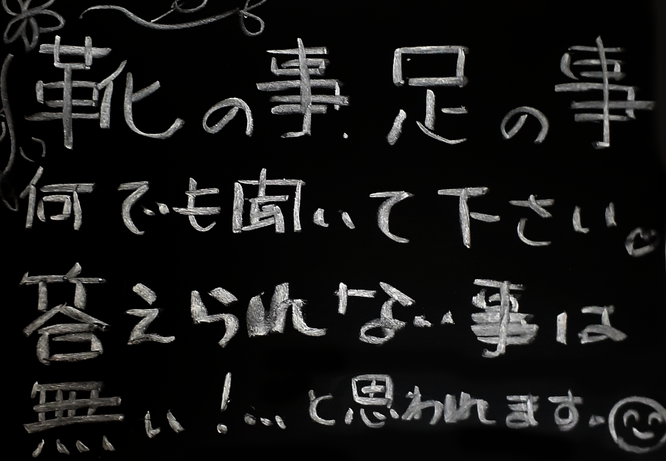 靴の事.足の事
何でも聞いて下さい。
答えられない事は
無い!...と思われます。